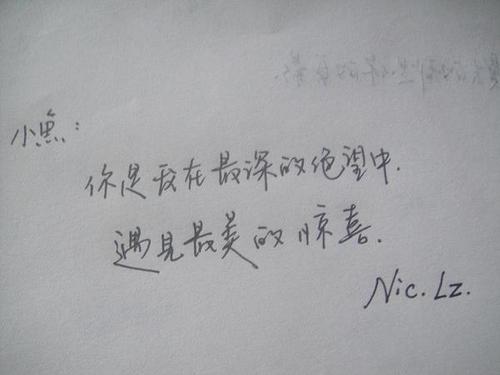 小鱼：
你是我在最深的绝望中.
遇见最美的惊喜.
Nic. Lz.